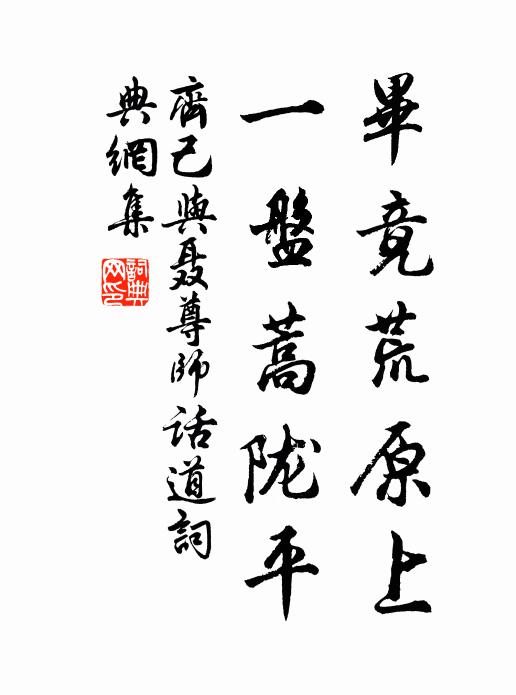 畢竟荒原上
一盤蒿陇平
齊己與聂尊師话道詞
典網集
詞典网印